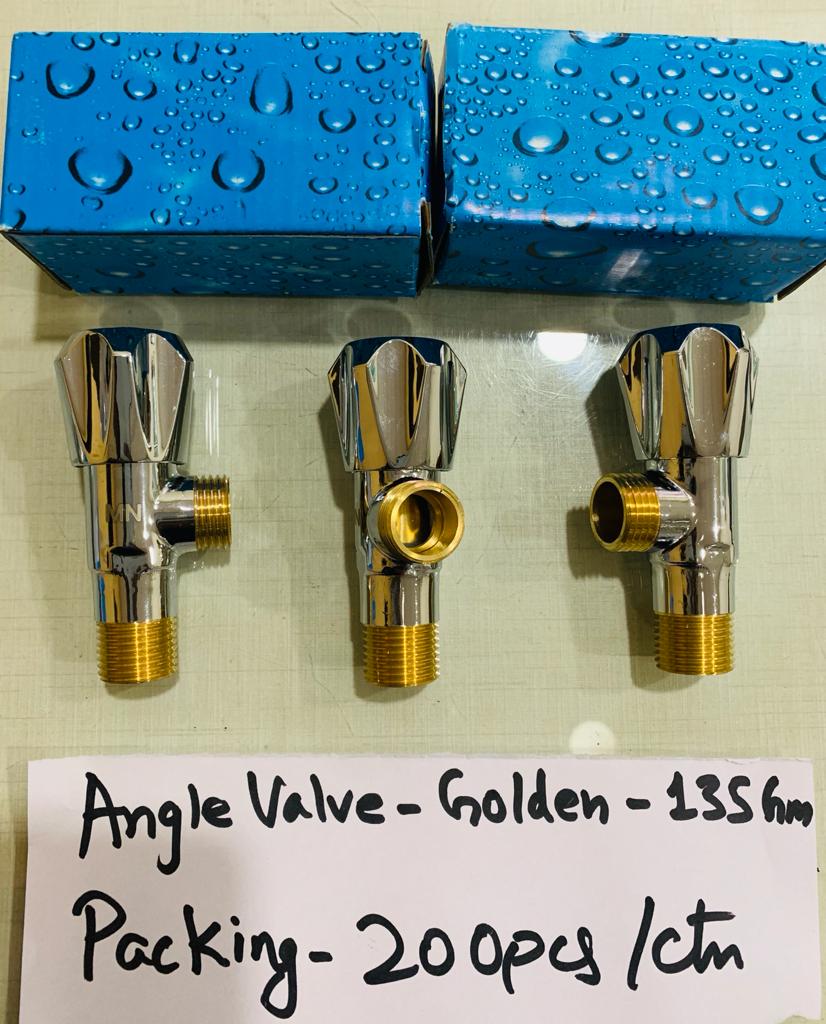 MN
Angle Valve - Golden - 135 Gm
Packing - 200pcs /ctn